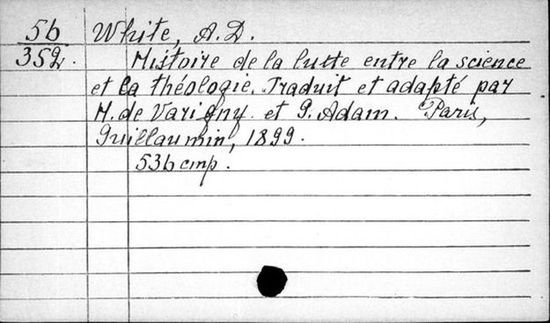 56 White, A.D.
352. Histoire de la lutte entre la science
et la théologie. Traduit et adapté par
H. de Varigny et G. Adam. Paris,
Guillaumin, 1899.
536 cmp.